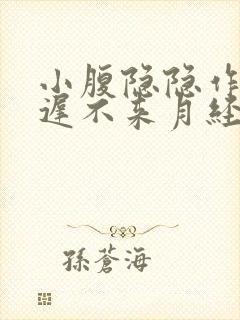 小腹隐隐作
遲不来月经
孫蒼海